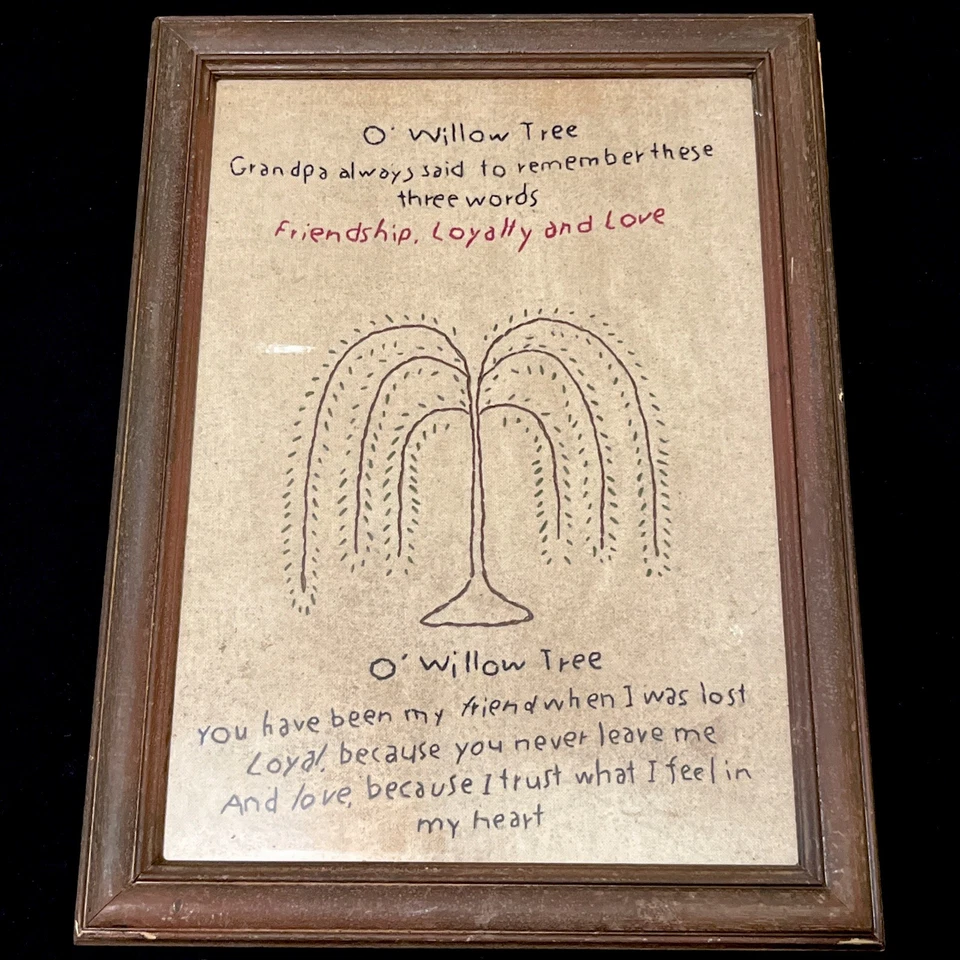 O' Willow Tree
Grandpa always said to remember these
three words
Friendship, Loyalty and Love
O' Willow Tree
You have been my friend when I was lost
Loyal, because you never leave me
And love, because I trust what I feel in
my heart